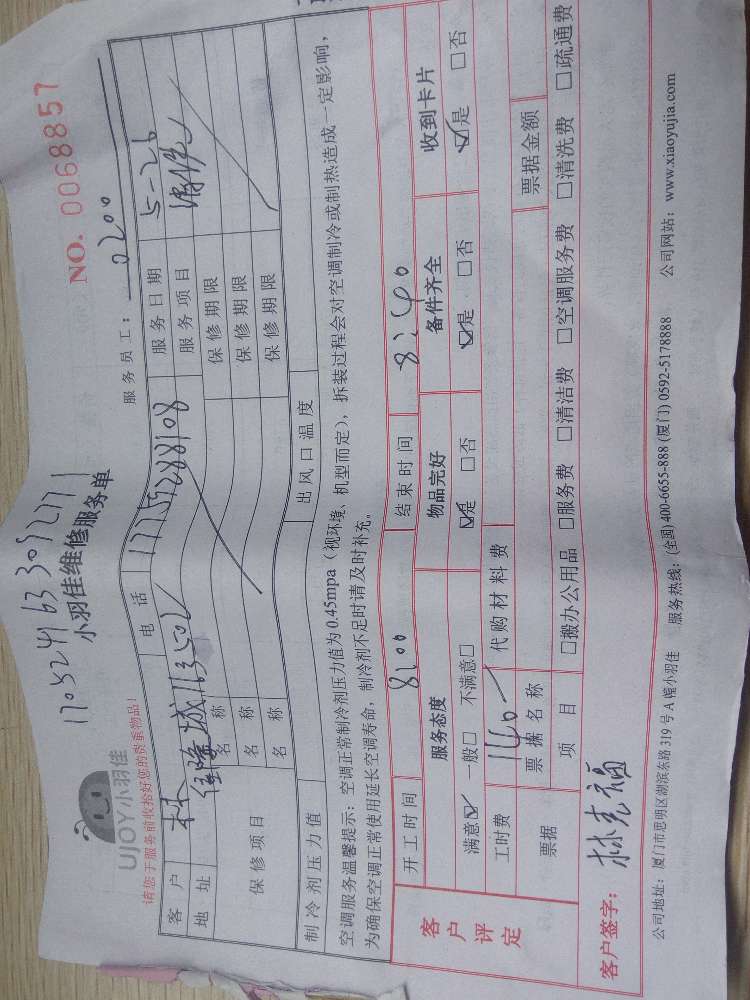 NO. 0068857
UJOY小羽佳
小羽佳维修服务单
请您于服务前收拾好您的贵重物品!
服务员工: 0200
客户 林 电话 17759288108 服务日期 5-26
地址 163502 服务项目
保修项目 名称 保修期限
名称 保修期限
名称 保修期限
制冷剂压力值 出风口温度
空调服务温馨提示:空调正常制冷剂压力值为0.45mpa(视环境、机型而定),拆装过程会对空调制冷或制热造成一定影响,
为确保空调正常使用延长空调寿命,制冷剂不足时请及时补充。
客户评定
开工时间 8:00 结束时间 8:40
服务态度 物品完好 备件齐全 收到卡片
满意☑ 一般□ 不满意□ ☑是 □否 ☑是 □否 ☑是 □否
工时费 140 代购材料费
票据 票据名称 票据金额
项目 □搬办公用品 □服务费 □清洁费 □空调服务费 □清洗费 □疏通费
客户签字: 林克福
公司地址:厦门市思明区湖滨东路319号A幢小羽佳 服务热线:(全国)400-6655-888 (厦门)0592-5178888 公司网站:www.xiaoyujia.com